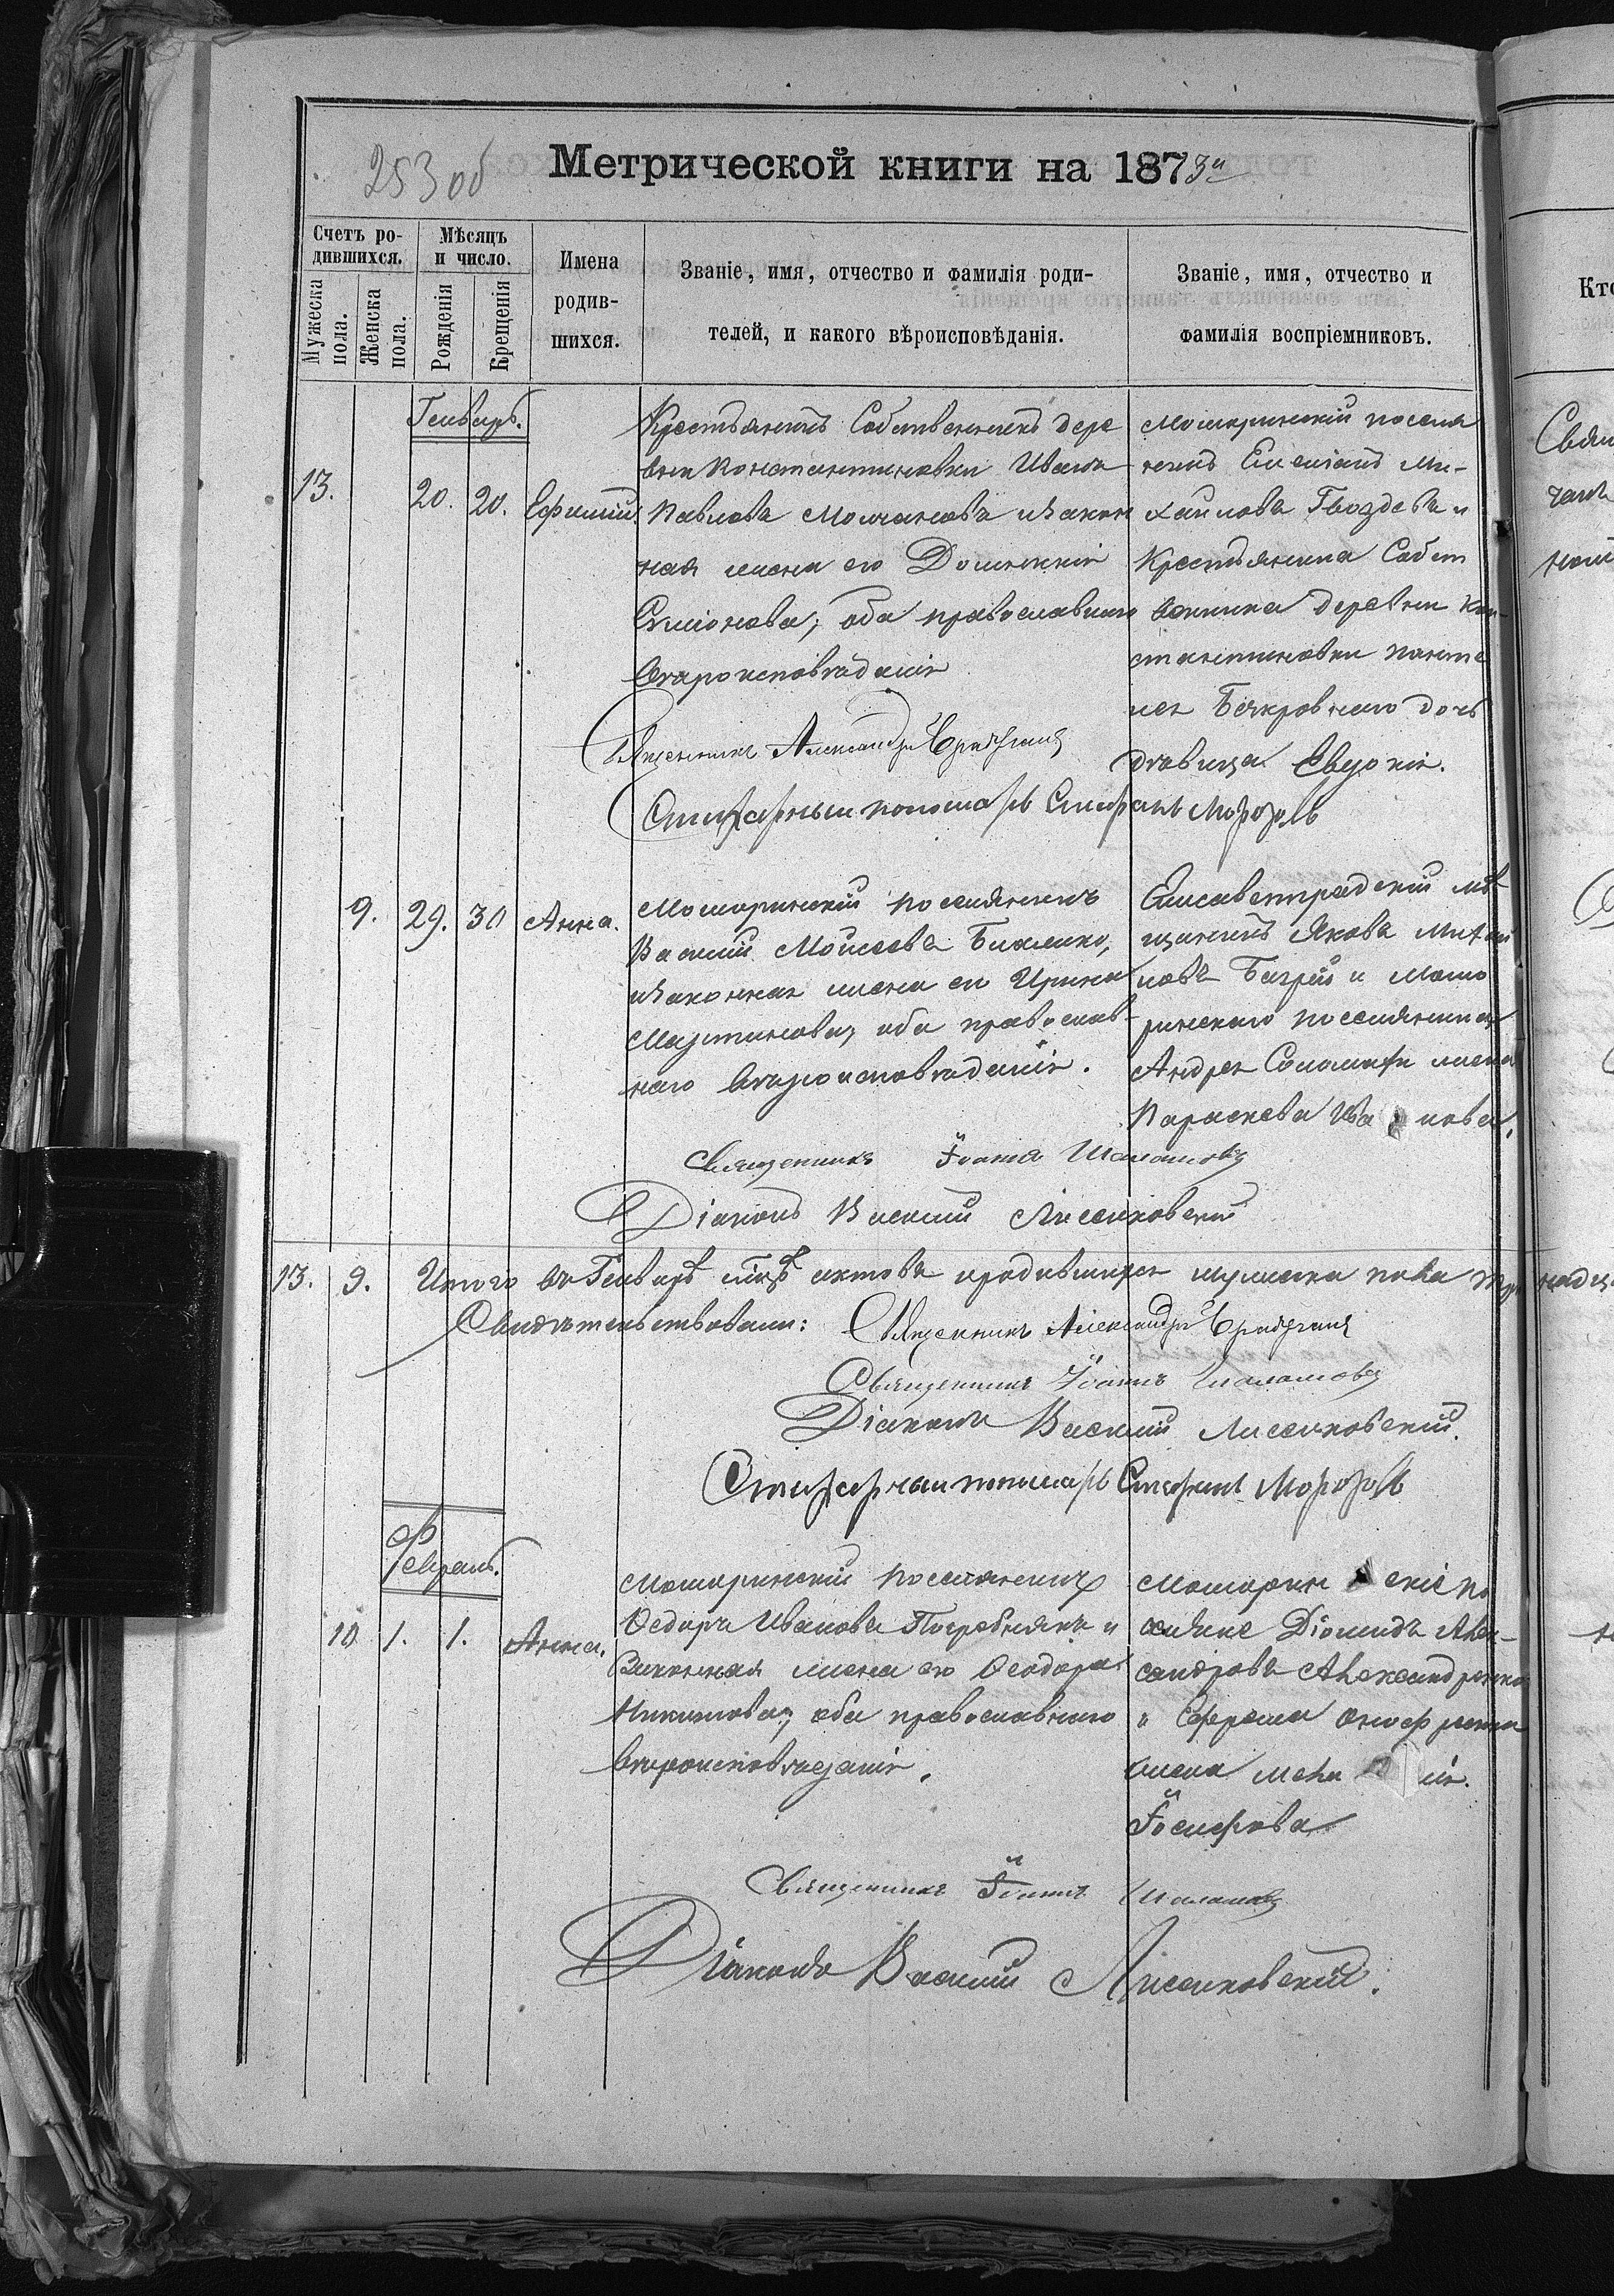 253 об
Метрической книги на 1873й
Счетъ ро-
дившихся.
Мужеска
пола.
Женска
пола.
Мѣсяцъ
и число.
Рожденія
Крещенія
Имена
родив-
шихся.
Званіе, имя, отчество и фамилія роди-
телей, и какого вѣроисповѣданія.
Званіе, имя, отчество и
фамилія воспріемниковъ.
Генварь.
13. 20. 20. Ефимій.
Крестьянинъ Собственникъ дере
вни Константиновки Иванъ
Павловъ Молчановъ и закон
ная жена его Домникія
Симонова; оба православнаго
вѣроисповѣданія
Мошоринскій поселя
нинъ Емеліанъ Ми-
хайловъ Гвоздевъ и
Крестьянина Собст
венника деревни Кон-
стантиновки Панте
лея дочь
дѣвица Евдокія.
Священникъ Александръ
Стихарный пономарь Стефанъ Морозовъ
9. 29. 30 Анна.
Мошоринскій поселянинъ
Василій Моѵсеевъ Бижинко,
и законная жена его Ирина
Мартинова, оба православ-
наго вѣроисповѣданія.
Елисаветградскій мѣ
щанинъ Яковъ Михай
ловъ Багрій и Мошо
ринскаго поселянина
Андрея Соломахи жена
Параскева Ива нова.
Священникъ Іоаннъ Шаламовъ
Діаконъ Василій Лисенковскій
13. 9. Итого въ Генварѣ мцѣ актовъ родившихся мужеска пола
Свидѣтельствовали: Священникъ Александръ
Священникъ Іоаннъ Шаламовъ
Діаконъ Василій Лисенковскій.
Стихарный пономарь Стефанъ Морозовъ
Февраль.
10 1. 1. Анна.
Мошоринскій поселянинъ
Ѳедоръ Ивановъ Погребнякъ и
Законная жена его Ѳеодора
Никитова; оба православнаго
вѣроисповѣданія.
Мошорин скіе по
селяне Діомидъ Алек-
сандровъ Александренко
и Ефрема Онофренка
жена Мела нія.
Іосифова
Священникъ Іоаннъ Шаламовъ
Діаконъ Василій Лисенковскій.